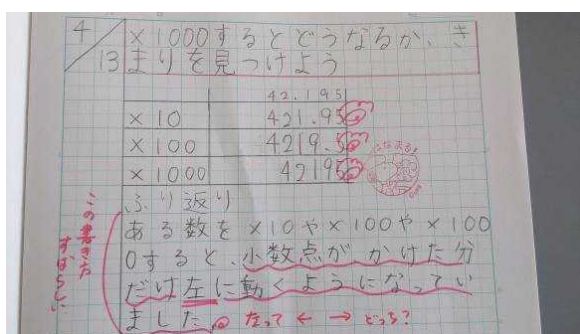 4/13
×1000するとどうなるか、き
まりを見つけよう
42.195
×10 421.95
×100 4219.5
×1000 42195
はなまる
ふり返り
ある数を×10や×100や×100
0すると、小数点がかけた分
だけ左に動くようになってい
ました。
だって ← → どっち?